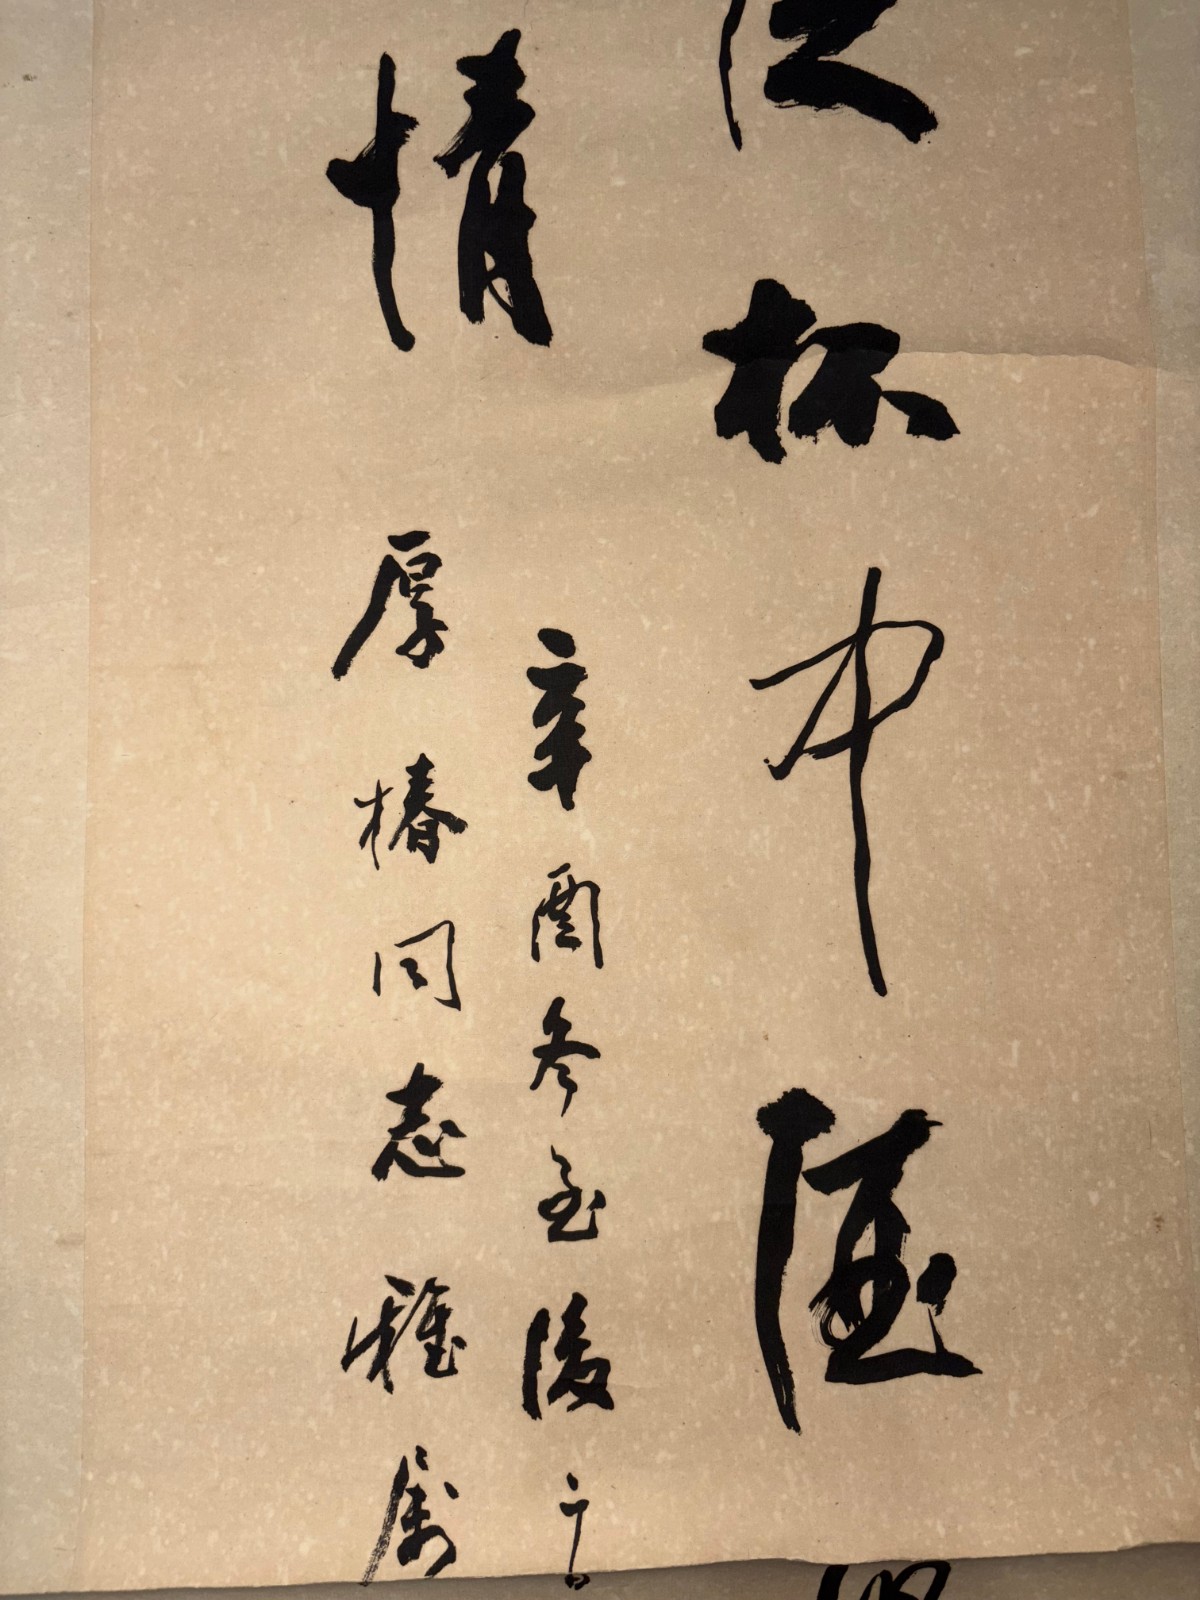 杯中
情
辛酉冬至後
厚椿同志雅属